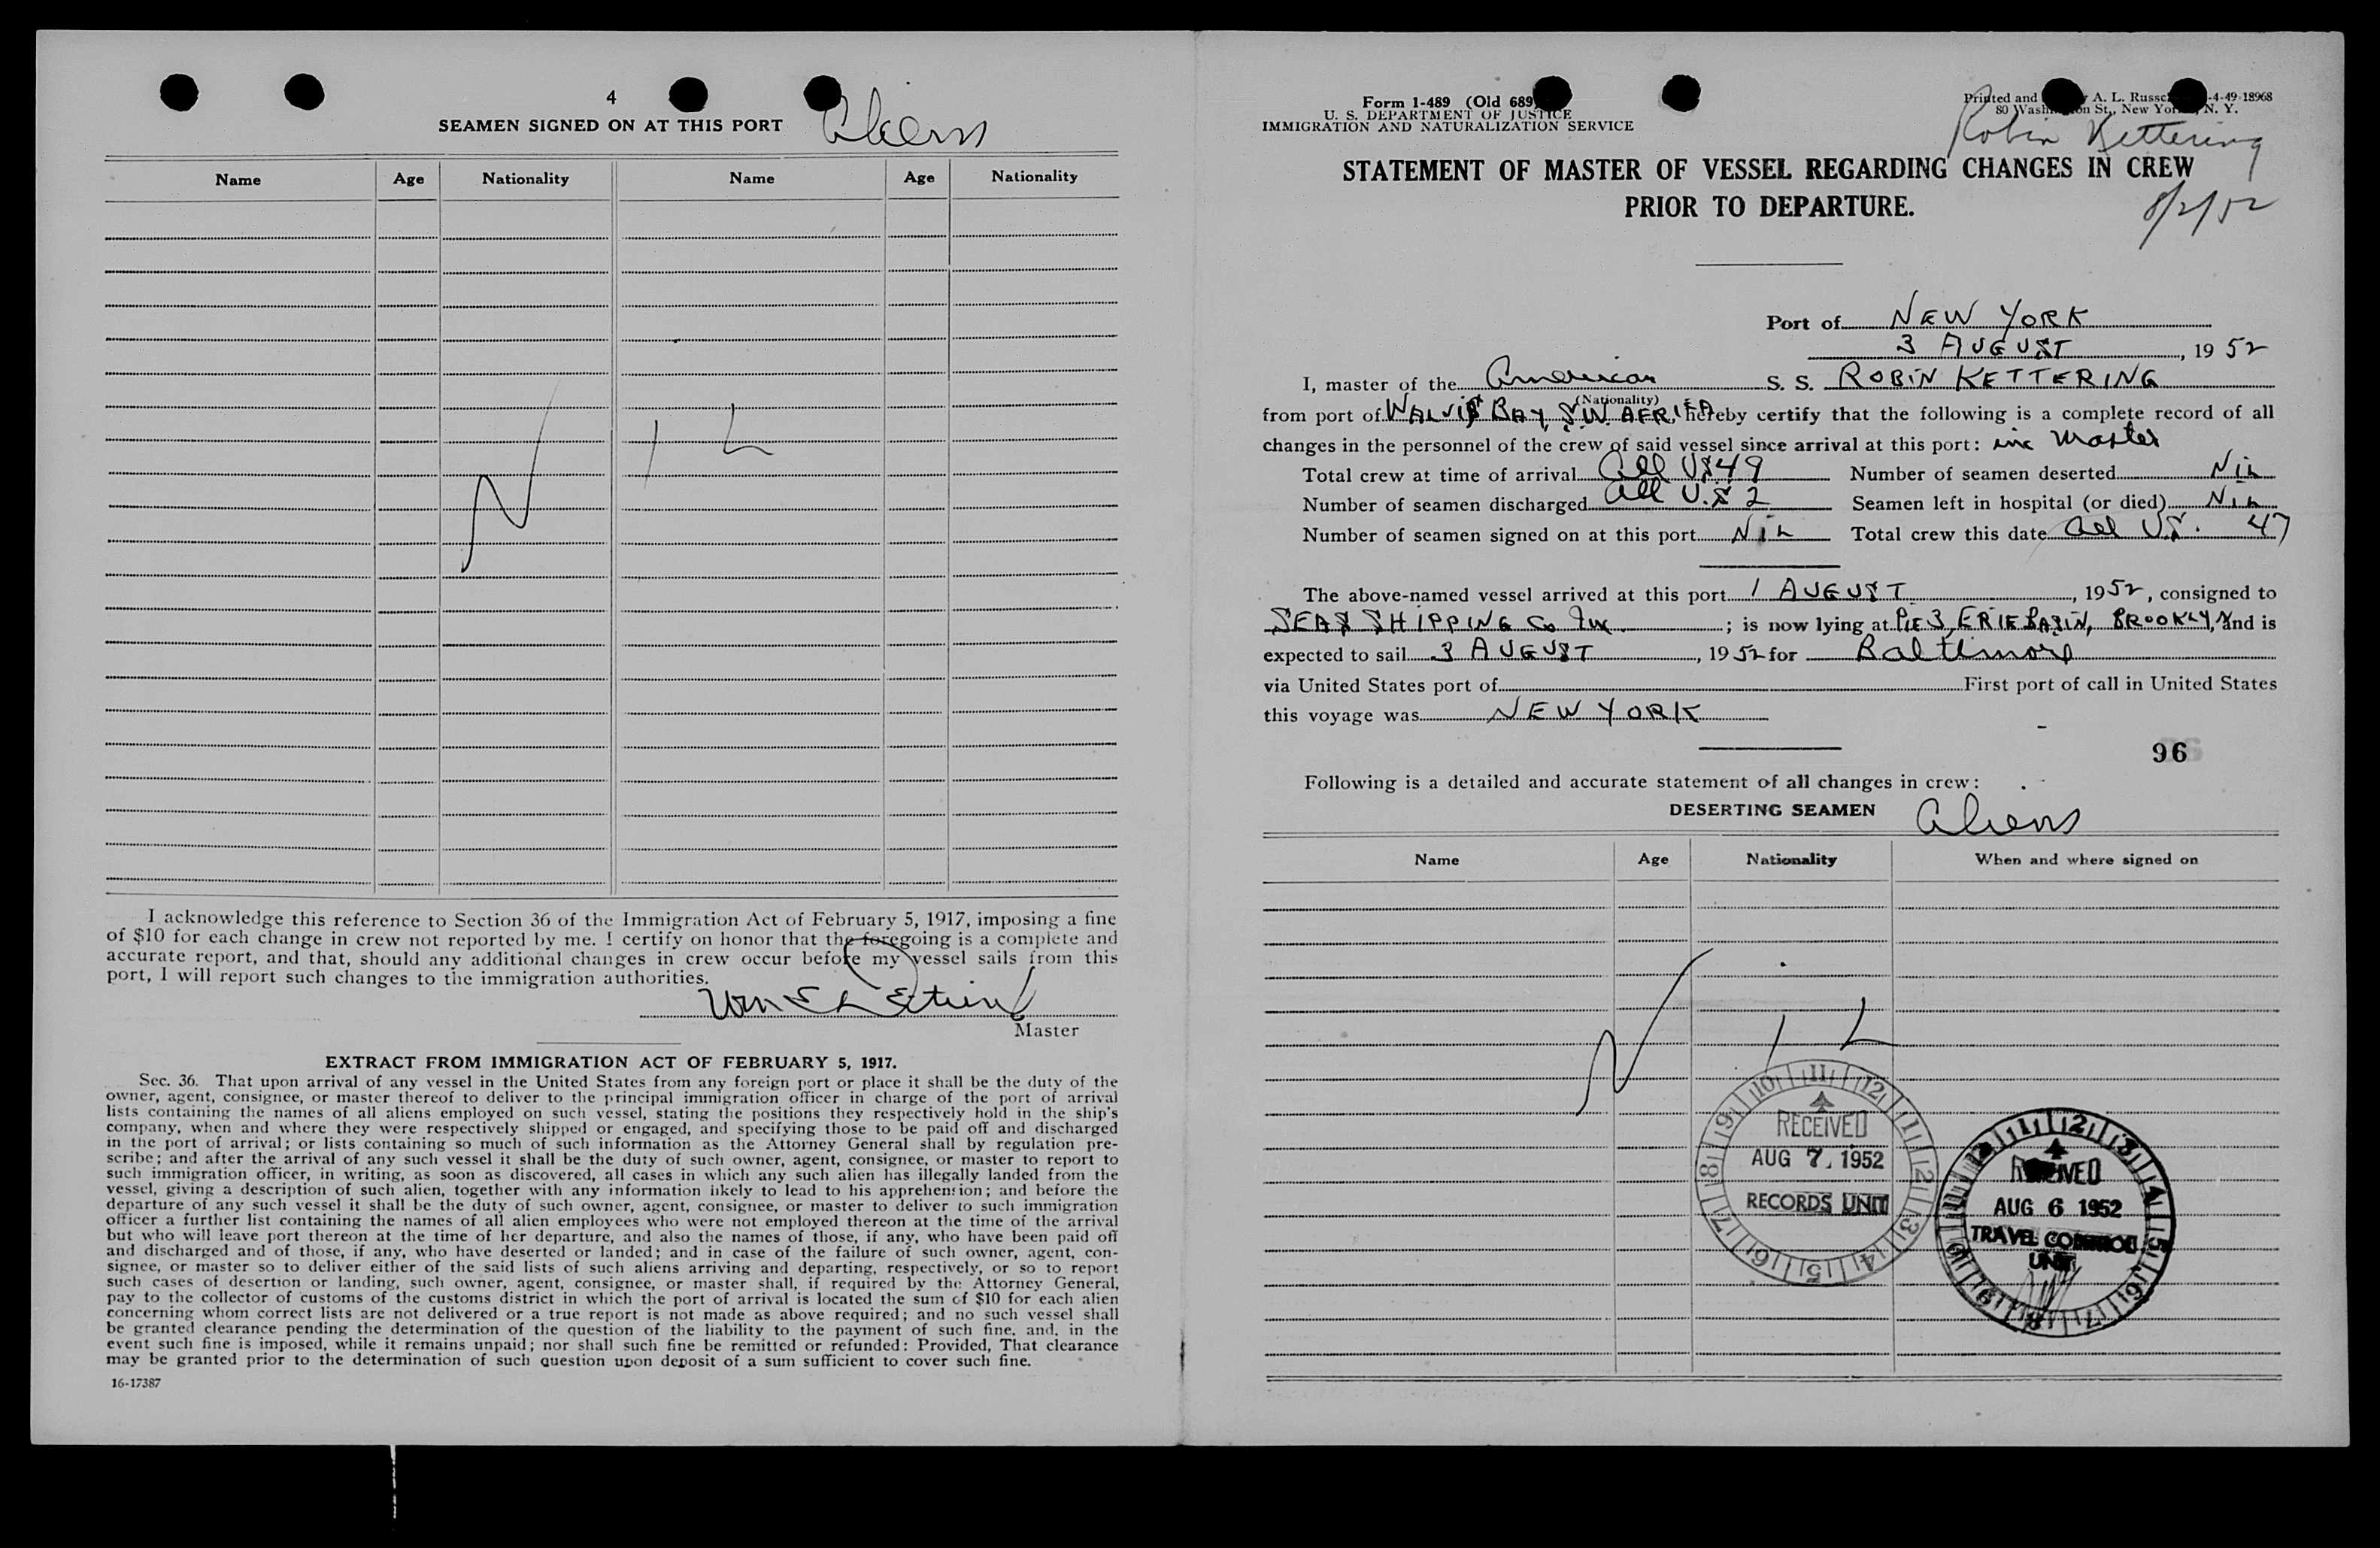 4
SEAMEN SIGNED ON AT THIS PORT Aliens
Name Age Nationality Name Age Nationality
N I L
I acknowledge this reference to Section 36 of the Immigration Act of February 5, 1917, imposing a fine
of $10 for each change in crew not reported by me. I certify on honor that the foregoing is a complete and
accurate report, and that, should any additional changes in crew occur before my vessel sails from this
port, I will report such changes to the immigration authorities.
Master
EXTRACT FROM IMMIGRATION ACT OF FEBRUARY 5, 1917.
Sec. 36. That upon arrival of any vessel in the United States from any foreign port or place it shall be the duty of the
owner, agent, consignee, or master thereof to deliver to the principal immigration officer in charge of the port of arrival
lists containing the names of all aliens employed on such vessel, stating the positions they respectively hold in the ship's
company, when and where they were respectively shipped or engaged, and specifying those to be paid off and discharged
in the port of arrival; or lists containing so much of such information as the Attorney General shall by regulation pre-
scribe; and after the arrival of any such vessel it shall be the duty of such owner, agent, consignee, or master to report to
such immigration officer, in writing, as soon as discovered, all cases in which any such alien has illegally landed from the
vessel, giving a description of such alien, together with any information likely to lead to his apprehension; and before the
departure of any such vessel it shall be the duty of such owner, agent, consignee, or master to deliver to such immigration
officer a further list containing the names of all alien employees who were not employed thereon at the time of the arrival
but who will leave port thereon at the time of her departure, and also the names of those, if any, who have been paid off
and discharged and of those, if any, who have deserted or landed; and in case of the failure of such owner, agent, con-
signee, or master so to deliver either of the said lists of such aliens arriving and departing, respectively, or so to report
such cases of desertion or landing, such owner, agent, consignee, or master shall, if required by the Attorney General,
pay to the collector of customs of the customs district in which the port of arrival is located the sum of $10 for each alien
concerning whom correct lists are not delivered or a true report is not made as above required; and no such vessel shall
be granted clearance pending the determination of the question of the liability to the payment of such fine, and, in the
event such fine is imposed, while it remains unpaid; nor shall such fine be remitted or refunded: Provided, That clearance
may be granted prior to the determination of such question upon deposit of a sum sufficient to cover such fine.
16-17387
Form 1-489 (Old 689
U. S. DEPARTMENT OF JUSTICE
IMMIGRATION AND NATURALIZATION SERVICE
Printed and A. L. -4-49-18968
80 Washington St., New York, N. Y.
Robin Kettering
8/2/52
STATEMENT OF MASTER OF VESSEL REGARDING CHANGES IN CREW
PRIOR TO DEPARTURE.
Port of NEW YORK
3 AUGUST, 19 52
I, master of the American S. S. ROBIN KETTERING
(Nationality)
from port of WALVIS BAY, S.W. AFRICA, hereby certify that the following is a complete record of all
changes in the personnel of the crew of said vessel since arrival at this port: inc Master
Total crew at time of arrival All US 49 Number of seamen deserted NIL
Number of seamen discharged All U.S 2 Seamen left in hospital (or died) NIL
Number of seamen signed on at this port NIL Total crew this date All US. 47
The above-named vessel arrived at this port 1 AUGUST, 1952, consigned to
SEAS SHIPPING Co Inc; is now lying at PIE 3, ERIE BASIN, BROOKLYN, and is
expected to sail 3 AUGUST, 1952 for Baltimore
via United States port of First port of call in United States
this voyage was NEW YORK
96
Following is a detailed and accurate statement of all changes in crew:
DESERTING SEAMEN Aliens
Name Age Nationality When and where signed on
N I L
RECEIVED
AUG 7, 1952
RECORDS UNIT
RECEIVED
AUG 6 1952
TRAVEL CONTROL
UNIT